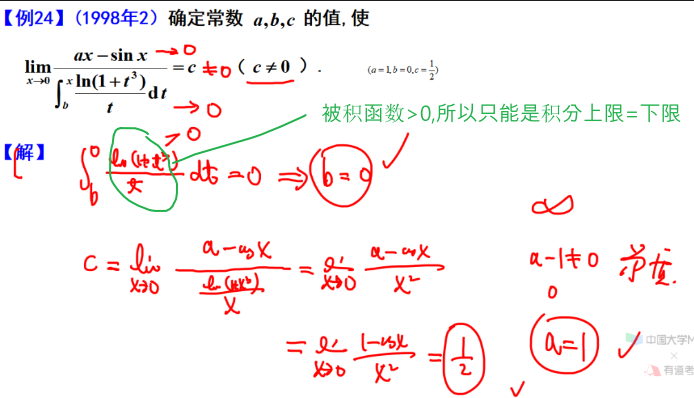 【例24】(1998年2) 确定常数 a,b,c 的值,使
lim x→0 (ax − sin x)/(∫_b^x ln(1+t³)/t dt) = c ( c ≠ 0 ). (a=1,b=0,c=1/2)
→0 ≠0
→0
被积函数>0,所以只能是积分上限=下限
>0
【解】 ∫_b^0 ln(1+t³)/t dt = 0 ⇒ b = 0 ✓
∞
c = lim x→0 (a − cos x)/(ln(1+x³)/x) = lim x→0 (a − cos x)/x² a−1≠0 矛盾.
0
= lim x→0 (1 − cos x)/x² = 1/2 ✓ a=1 ✓
中国大学M
×
有道考